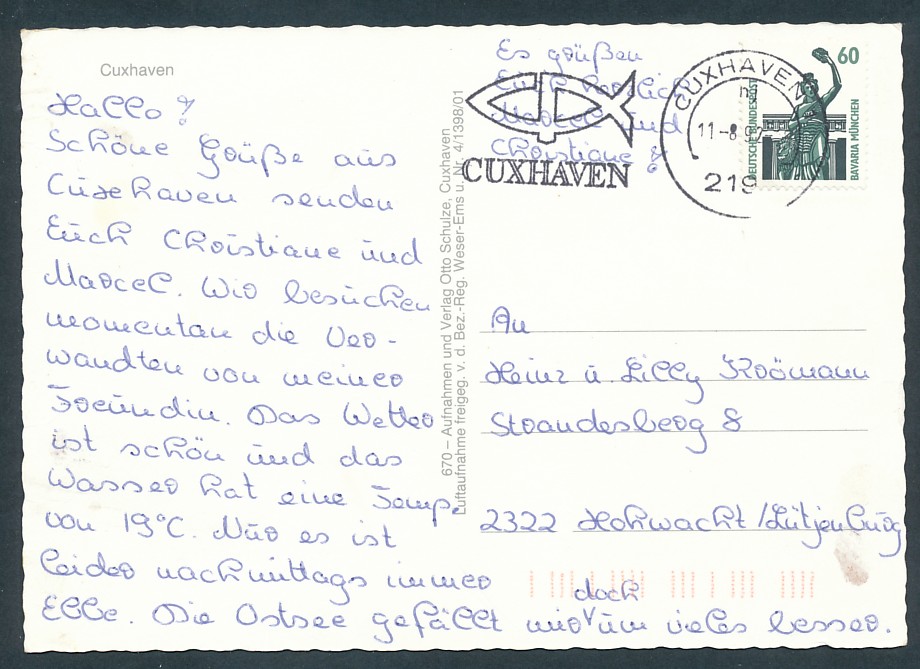 Cuxhaven
Hallo !
Schöne Grüße aus
Cuxehaven senden
Euch Christiane und
Marcel. Wir besuchen
momentan die Ver-
wandten von meiner
Freundin. Das Wetter
ist schön und das
Wasser hat eine Temp.
von 19°C. Nur es ist
leider nachmittags immer
Ebbe. Die Ostsee gefällt mir doch um vieles besser.
Es grüßen
Euch herzlich
Marcel und
Christiane !
670 – Aufnahmen und Verlag Otto Schulze, Cuxhaven
Luftaufnahme freigeg. v. d. Bez.-Reg. Weser-Ems u. Nr. 4/1398/01
CUXHAVEN
CUXHAVEN
11-8.92
219
60
DEUTSCHE BUNDESPOST
BAVARIA MÜNCHEN
An
Heinz u. Lilly Krömann
Strandesberg 8
2322 Hohwacht/Lütjenburg